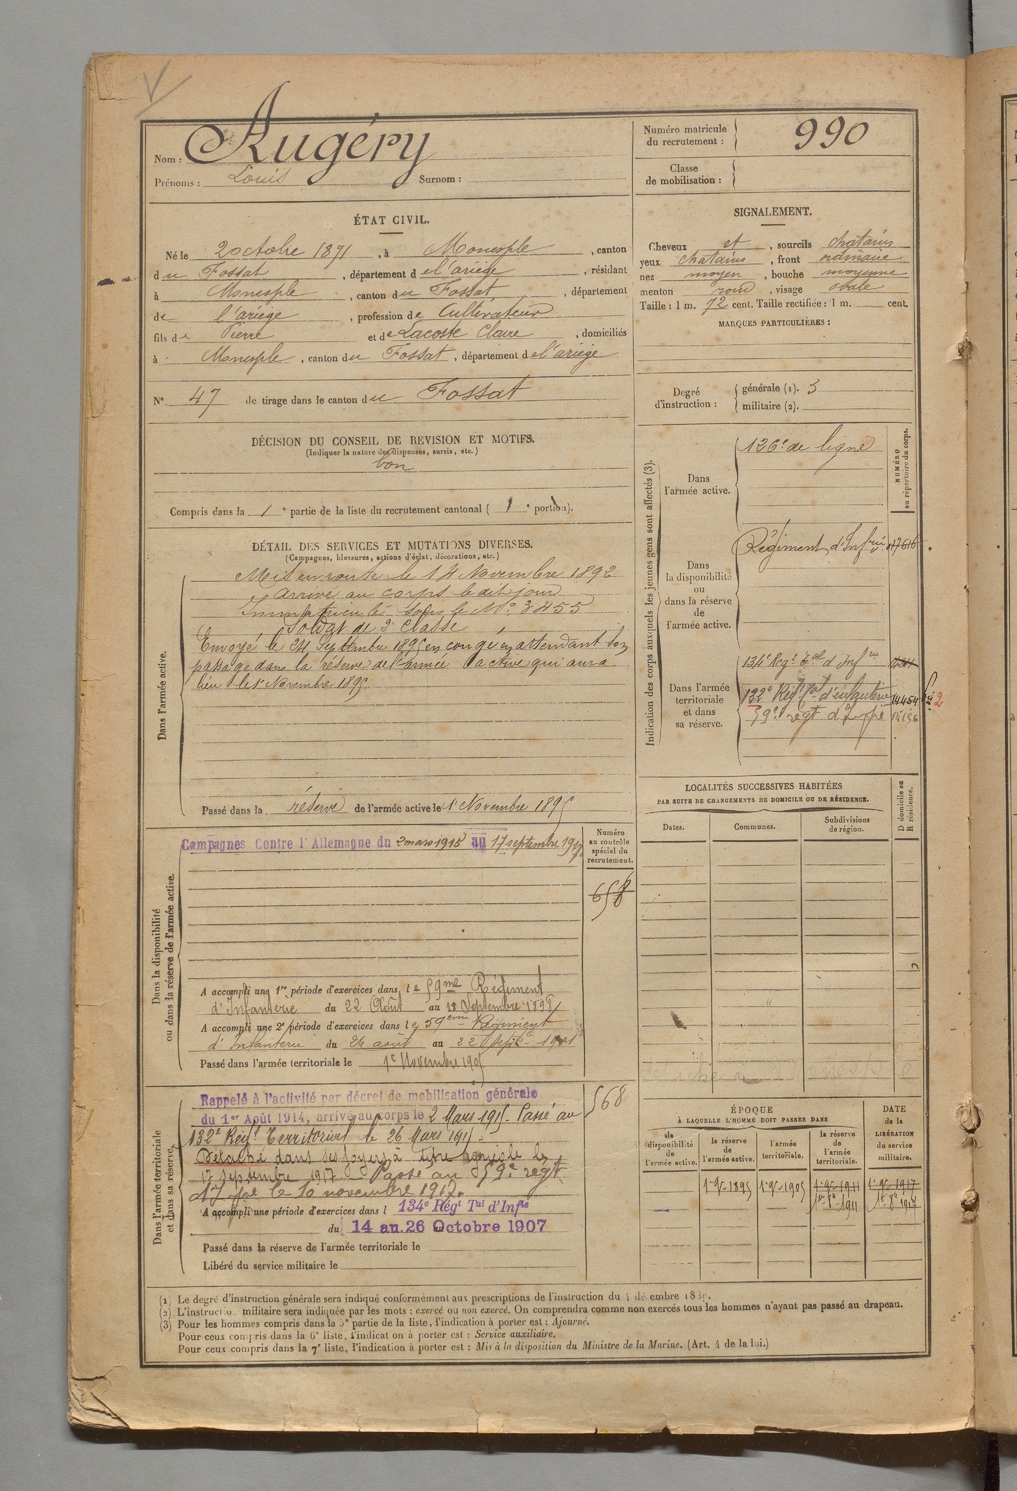 Nom : Augéry
Prénoms : Louis Surnom :
Numéro matricule du recrutement : 990
Classe de mobilisation :
ÉTAT CIVIL.
Né le 2 octobre 1871, à Monesple, canton
du Fossat, département de l'ariège, résidant
à Monesple, canton du Fossat, département
de l'ariège, profession de Cultivateur
fils de Pierre et de Lacoste Claire, domiciliés
à Monesple, canton du Fossat, département de l'ariège
N° 47 de tirage dans le canton du Fossat
SIGNALEMENT.
Cheveux et, sourcils chatains
yeux chatains, front ordinaire
nez moyen, bouche moyenne
menton rond, visage ovale
Taille : 1 m. 72 cent. Taille rectifiée : 1 m. cent.
MARQUES PARTICULIÈRES :
Degré d'instruction : générale (1). 3
militaire (2).
DÉCISION DU CONSEIL DE REVISION ET MOTIFS.
(Indiquer la nature des dispenses, sursis, etc.)
bon
Compris dans la 1e partie de la liste du recrutement cantonal ( 1e portion).
DÉTAIL DES SERVICES ET MUTATIONS DIVERSES.
(Campagnes, blessures, actions d'éclat, décorations, etc.)
Dans l'armée active.
Mis en route le 14 Novembre 1892
arrivé au corps le dit jour
Immatriculé sous le N° 3455
Soldat de 2e Classe
Envoyé le 24 Septembre 1895 en congé en attendant son
passage dans la réserve de l'armée active qui aura
lieu le 1er Novembre 1895
Passé dans la réserve de l'armée active le 1er Novembre 1895
Indication des corps auxquels les jeunes gens sont affectés (3).
NUMÉRO au répertoire du corps.
Dans l'armée active.
126e de ligne
Dans la disponibilité ou dans la réserve de l'armée active.
Régiment d'Infrie
Dans l'armée territoriale et dans sa réserve.
134e Regt tal d'Infrie
132e Regt tal d'infanterie 14454
59e régt d'Infie
LOCALITÉS SUCCESSIVES HABITÉES
PAR SUITE DE CHANGEMENTS DE DOMICILE OU DE RÉSIDENCE.
Dates. Communes. Subdivisions de région. D domicile ou R résidence.
Dans la disponibilité ou dans la réserve de l'armée active.
Campagnes Contre l'Allemagne du 2 mars 1915 au 17 septembre 1917
Numéro au contrôle spécial du recrutement.
658
A accompli une 1re période d'exercices dans le 59me Régiment
d'Infanterie du 22 Août au 18 Septembre 1898
A accompli une 2e période d'exercices dans le 59eme Régiment
d'Infanterie du 26 août au 22 Septe 1901
Passé dans l'armée territoriale le 1er Novembre 1905
Dans l'armée territoriale et dans sa réserve.
568
Rappelé à l'activité par décret de mobilisation générale
du 1er Août 1914, arrivé au corps le 2 Mars 1915. Passé au
132e Régt Territorial le 26 Mars 1915.
Détaché dans ses foyers à titre agricole le
17 septembre 1917. Passé au 59e régt
d'Infie le 10 novembre 1917.
A accompli une période d'exercices dans l 134e Régt Tal d'Infie
du 14 au 26 Octobre 1907
Passé dans la réserve de l'armée territoriale le
Libéré du service militaire le
ÉPOQUE
À LAQUELLE L'HOMME DOIT PASSER DANS
DATE de la LIBÉRATION du service militaire.
la disponibilité de l'armée active. la réserve de l'armée active. l'armée territoriale. la réserve de l'armée territoriale.
1er 9re 1895 1er 9re 1905 1er 9re 1911 1er 9re 1917
(1) Le degré d'instruction générale sera indiqué conformément aux prescriptions de l'instruction du 4 décembre 1889.
(2) L'instruction militaire sera indiquée par les mots : exercé ou non exercé. On comprendra comme non exercés tous les hommes n'ayant pas passé au drapeau.
(3) Pour les hommes compris dans la 5e partie de la liste, l'indication à porter est : Ajourné.
Pour ceux compris dans la 6e liste, l'indication à porter est : Service auxiliaire.
Pour ceux compris dans la 7e liste, l'indication à porter est : Mis à la disposition du Ministre de la Marine. (Art. 4 de la loi.)